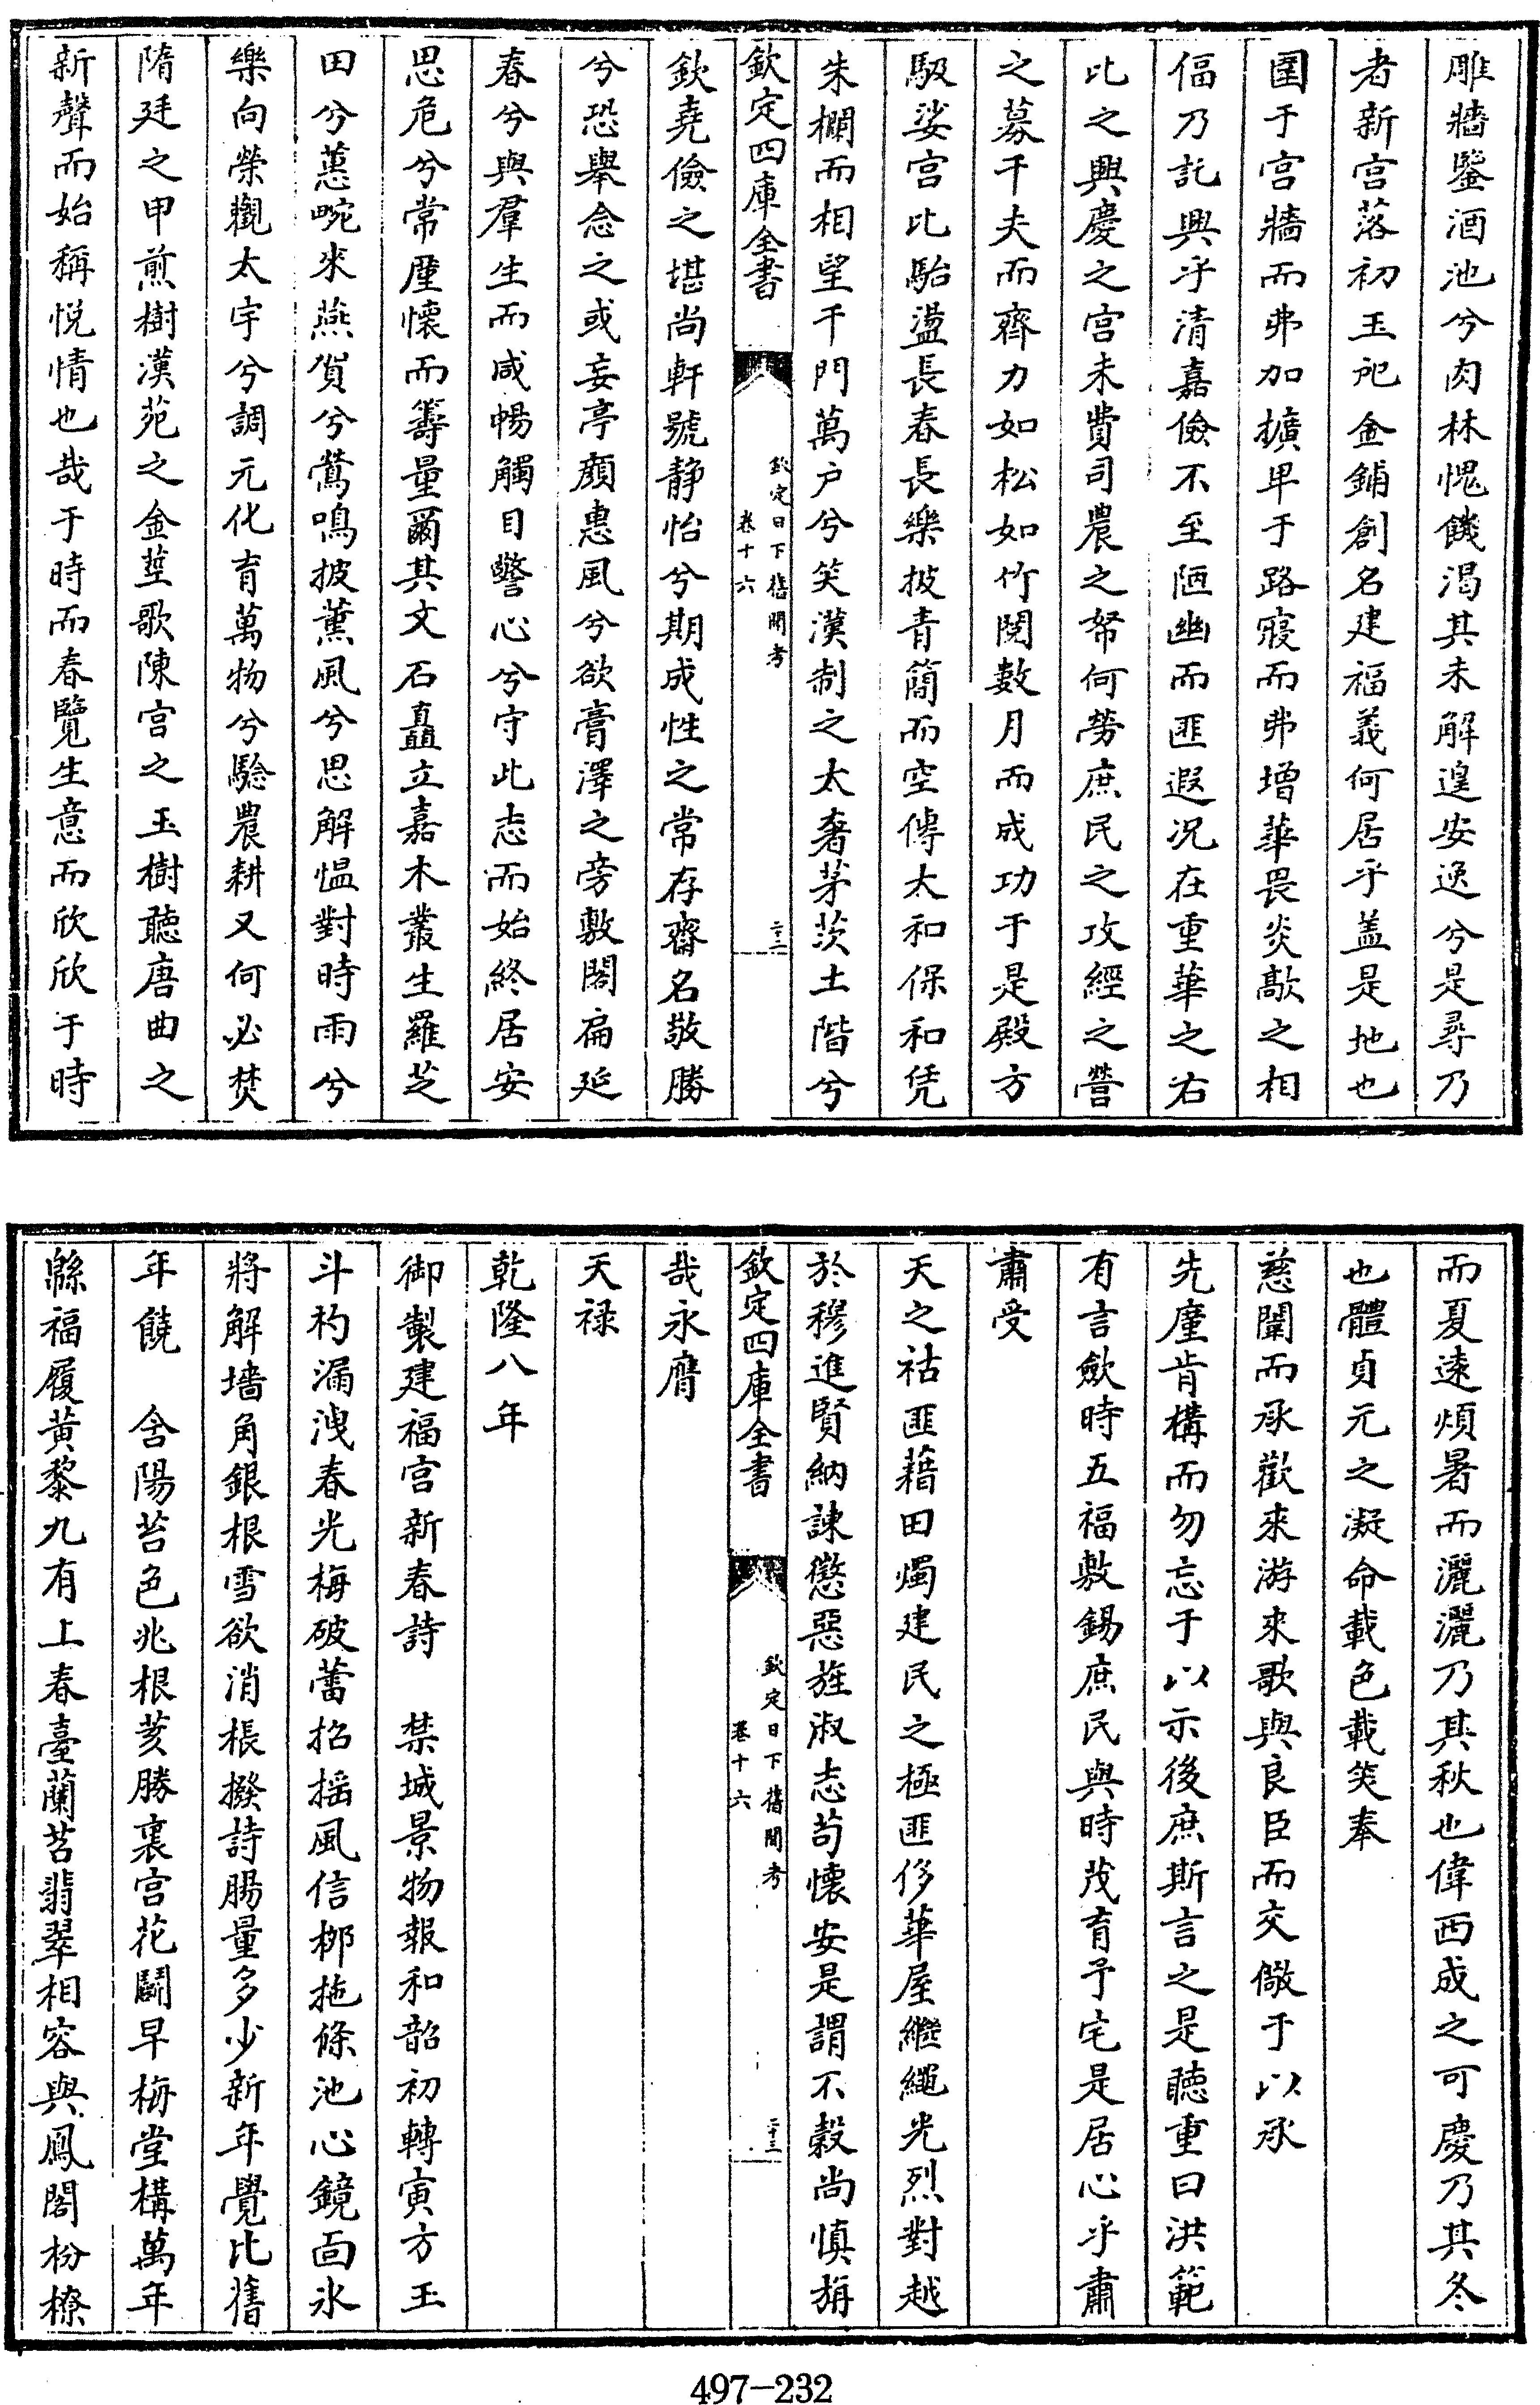 雕牆鑒酒池兮肉林愧饑渴其未解遑安逸兮是尋乃
者新宫落初玉戺金鋪創名建福義何居乎盖是地也
圉于宫牆而弗加擴卑于路寢而弗增華畏炎歊之相
偪乃託興乎清嘉儉不至陋幽而匪遐況在重華之右
比之興慶之宫未費司農之帑何勞庶民之攻經之營
之募千夫而齊力如松如竹閱數月而成功于是殿方
馺娑宫比駘盪長春長樂披青簡而空傳太和保和凭
朱欄而相望千門萬户兮笑漢制之太奢茅茨土階兮
欽定四庫全書
欽定日下舊聞考
卷十六
二十二
欽堯儉之堪尚軒號静怡兮期成性之常存齋名敬勝
兮恐舉念之或妄亭顏惠風兮欲膏澤之旁敷閣扁延
春兮與羣生而咸暢觸目警心兮守此志而始終居安
思危兮常廑懷而籌量爾其文石矗立嘉木叢生羅芝
田兮蕙畹來燕賀兮鶯鳴披薰風兮思解愠對時雨兮
樂向榮觀太宇兮調元化育萬物兮驗農耕又何必焚
隋廷之甲煎樹漢苑之金莖歌陳宫之玉樹聽唐曲之
新聲而始稱悦情也哉于時而春覽生意而欣欣于時
而夏遠煩暑而灑灑乃其秋也偉西成之可慶乃其冬
也體貞元之凝命載色載笑奉
慈闈而承歡來游來歌與良臣而交儆于以承
先廑肯構而勿忘于以示後庶斯言之是聽重曰洪範
有言歛時五福敷錫庶民與時茂育予宅是居心乎肅
肅受
天之祜匪藉田燭建民之極匪侈華屋繼繩光烈對越
於穆進賢納諫懲惡旌淑志苟懷安是謂不穀尚慎旃
欽定四庫全書
欽定日下舊聞考
卷十六
二十三
哉永膺
天禄
乾隆八年
御製建福宫新春詩　禁城景物報和韶初轉寅方玉
斗杓漏洩春光梅破蕾招摇風信栁拖條池心鏡面氷
將解墻角銀根雪欲消棖撥詩腸量多少新年覺比舊
年饒　含陽苔色兆根荄勝裏宫花鬭早梅堂構萬年
緜福履黄黎九有上春臺蘭苕翡翠相容與鳳閣枌橑
497-232